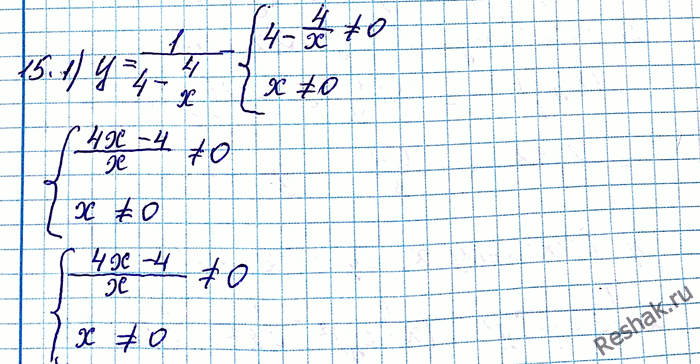 15. 1) y = 1/(4 - 4/x) { 4 - 4/x ≠ 0
x ≠ 0
{ (4x - 4)/x ≠ 0
x ≠ 0
{ (4x - 4)/x ≠ 0
x ≠ 0
Reshak.ru